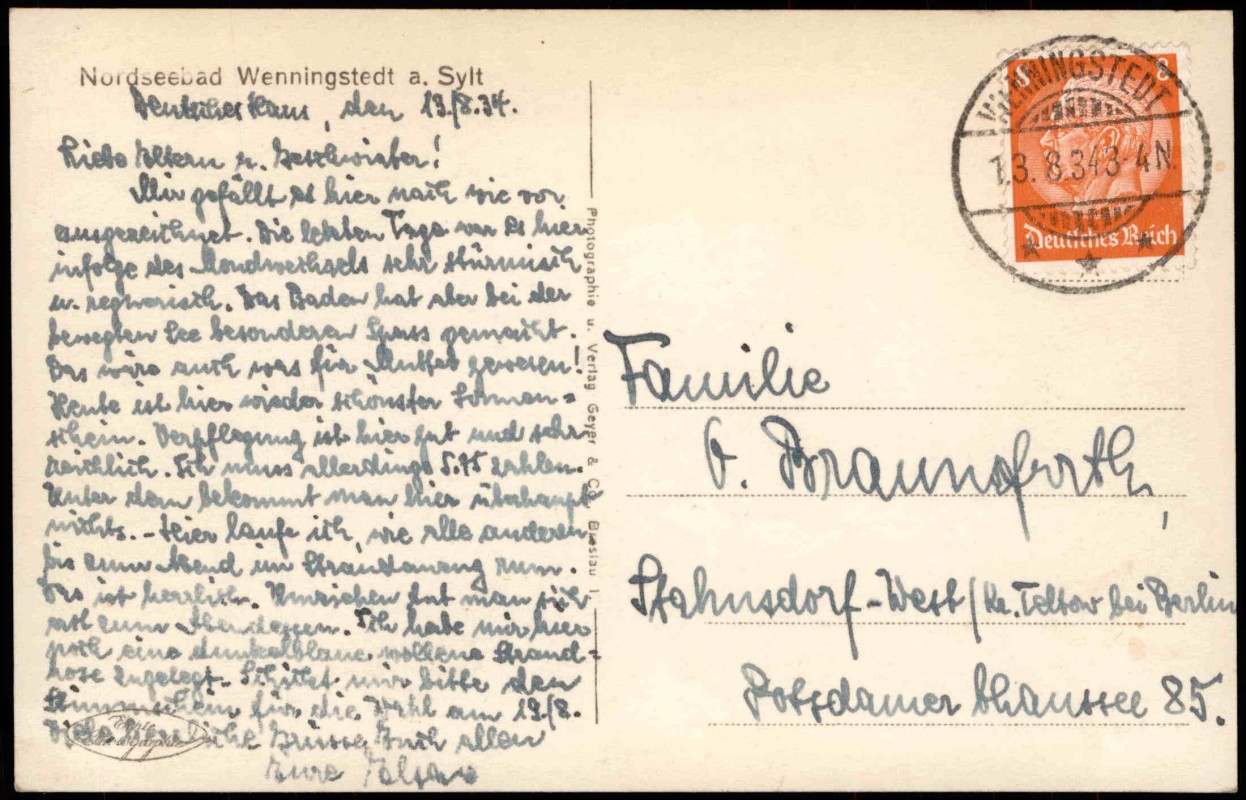 Nordseebad Wenningstedt a. Sylt
Deutsches Haus, den 13./8.34.
Liebe Eltern u. Geschwister!
Mir gefällt es hier nach wie vor
ausgezeichnet. Die letzten Tage war es hier
infolge des Mondwechsels sehr stürmisch
u. regnerisch. Das Baden hat aber bei der
bewegten See besonderen Spass gemacht.
Das wäre auch was für Mutter gewesen!
Heute ist hier wieder schönster Sonnen=
schein. Verpflegung ist hier gut und sehr
reichlich. Ich muss allerdings 5.75 zahlen.
Unter dem bekommt man hier überhaupt
nichts. - Hier laufe ich, wie alle anderen
bis zum Abend im Strandanzug rum.
Das ist herrlich. Umziehen tut man sich
erst zum Abendessen. Ich habe mir hier
noch eine dunkelblaue wollene Strand-
hose zugelegt. Schicket mir bitte den
Stimmschein für die Wahl am 19./8.
Viele herzliche Grüsse Euch allen
Eure
Echte
Photographie u. Verlag Geyer & Co., Breslau I
WENNINGSTEDT
13.8.34 3-4 N.
8 8
Deutsches Reich
Familie
O. Braunsfurth,
Stahnsdorf-West/Kr. Teltow bei Berlin
Potsdamer Chaussee 85.